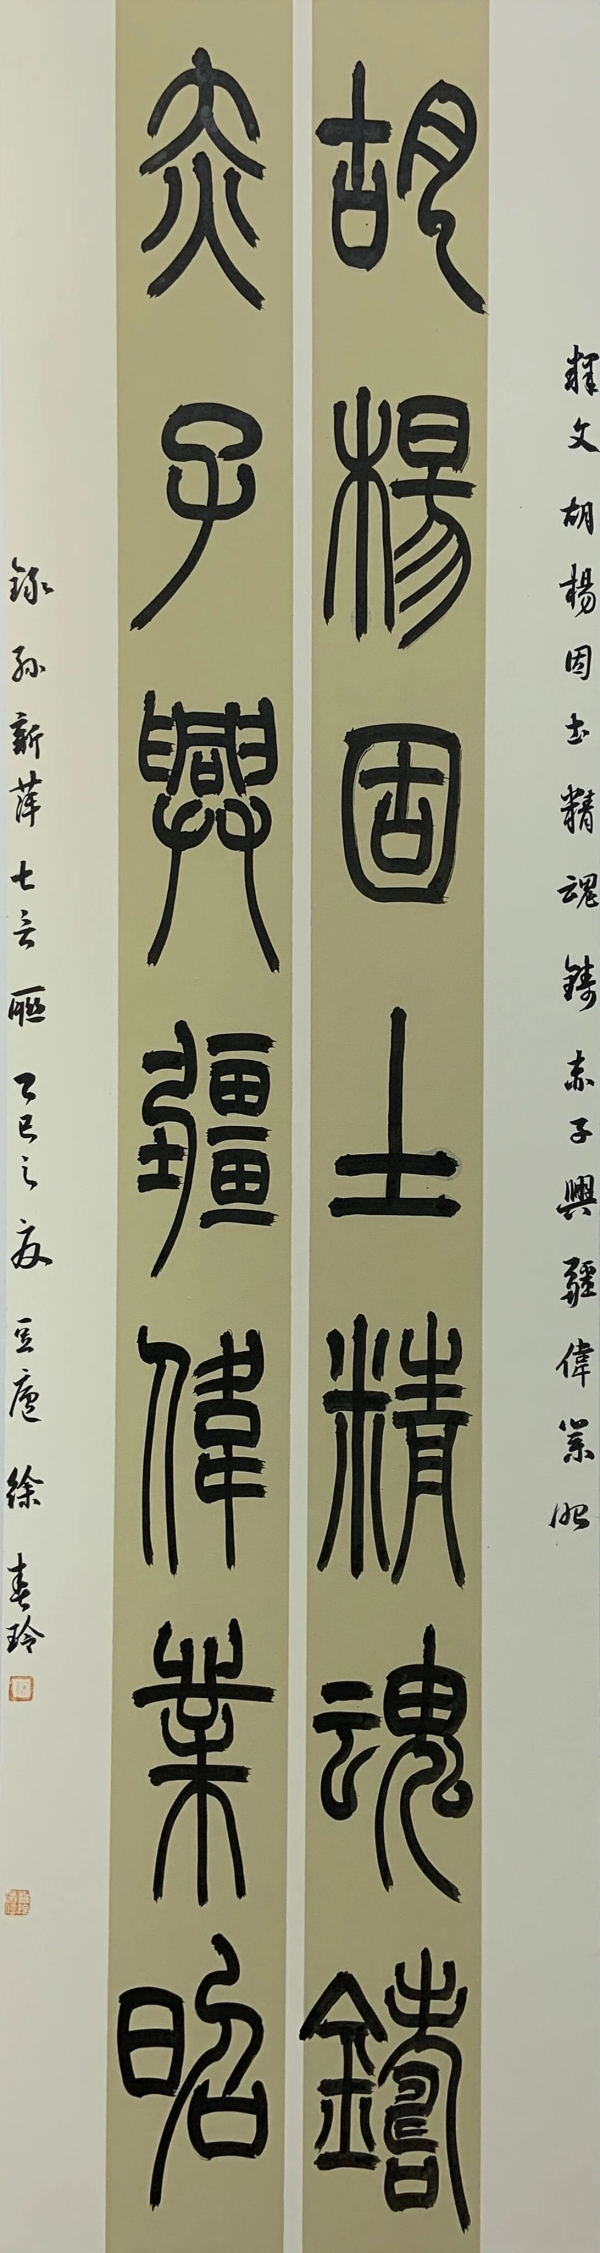 釋文胡楊固土精魂鑄赤子興疆偉業昭
胡楊固土精魂鑄
赤子興疆偉業昭
錄孫新萍七言聯乙巳之夜豆廬徐春玲